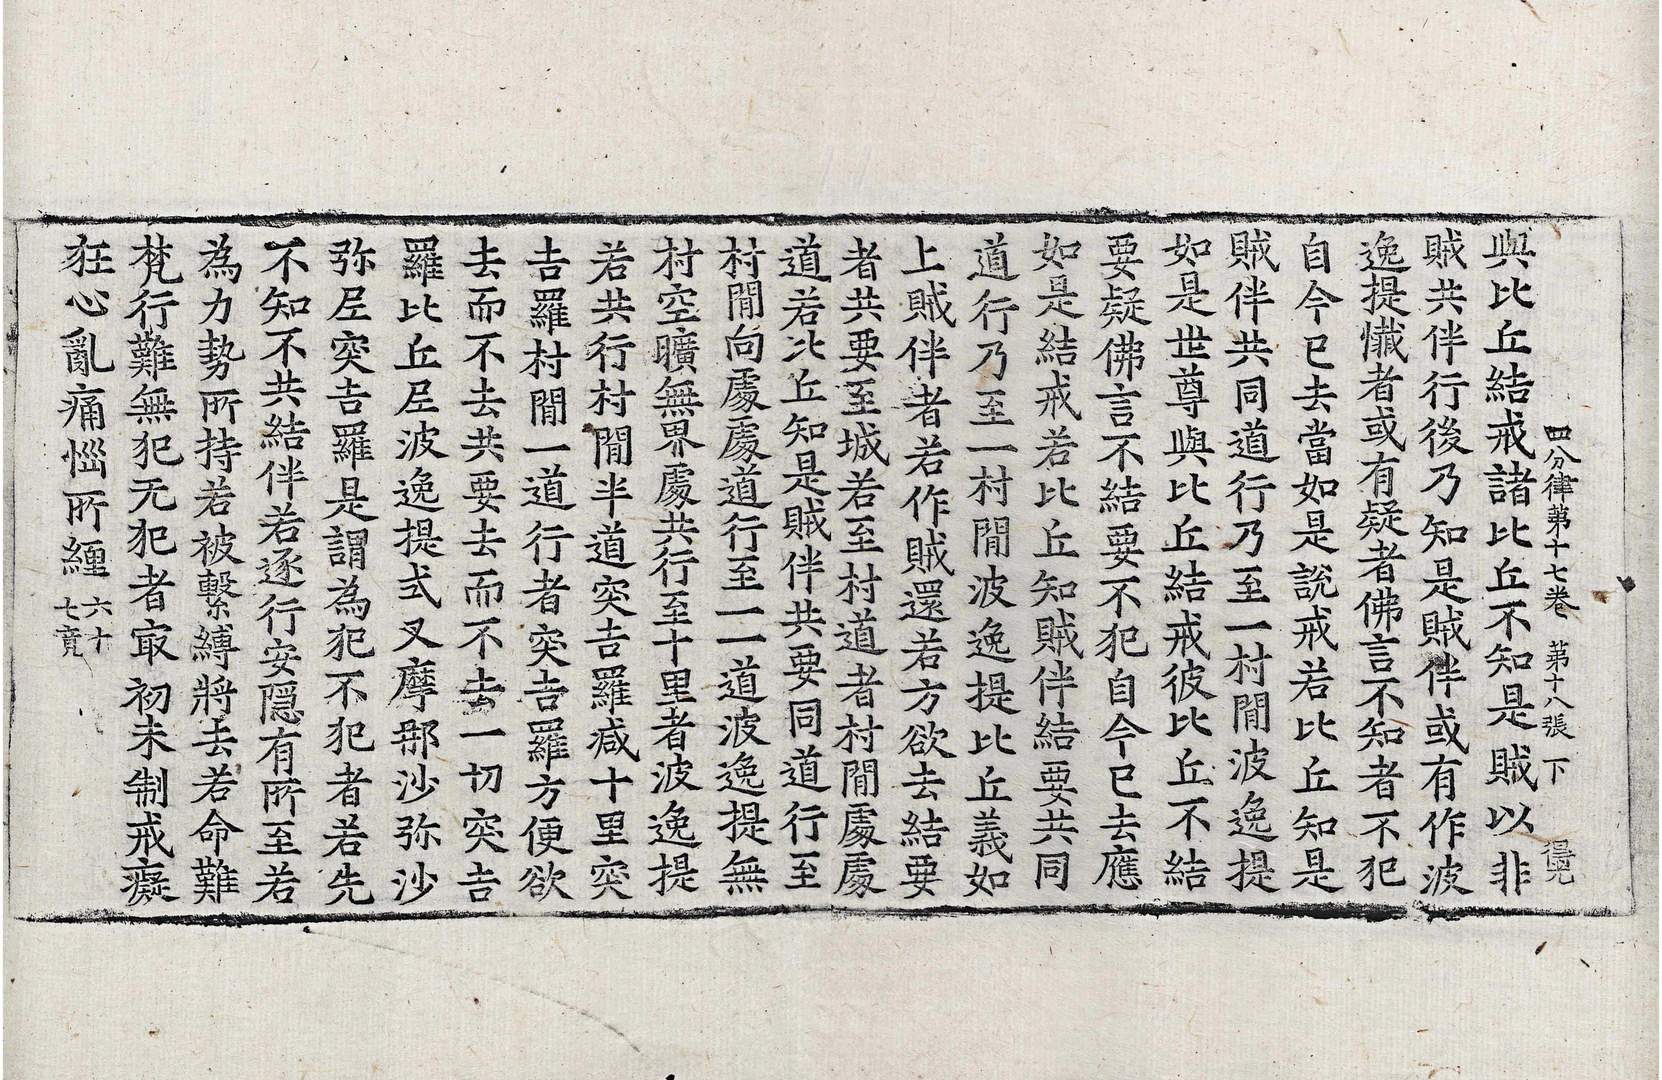 四分律第十七卷 第十八張 下
與比丘結戒諸比丘不知是賊以非
賊共伴行後乃知是賊伴或有作波
逸提懺者或有疑者佛言不知者不犯
自今已去當如是說戒若比丘知是
賊伴共同道行乃至一村間波逸提
如是世尊與比丘結戒彼比丘不結
要疑佛言不結要不犯自今已去應
如是結戒若比丘知賊伴結要共同
道行乃至一村間波逸提比丘義如
上賊伴者若作賊還若方欲去結要
者共要至城若至村道者村間處處
道若比丘知是賊伴共要同道行至
村間向處處道行至一一道波逸提無
村空曠無界處共行至十里者波逸提
若共行村間半道突吉羅減十里突
吉羅村間一道行者突吉羅方便欲
去而不去共要去而不去一切突吉
羅比丘尼波逸提式叉摩那沙弥沙
弥尼突吉羅是謂為犯不犯者若先
不知不共結伴若逐行安隱有所至若
為力勢所持若被繫縛將去若命難
梵行難無犯无犯者㝡初未制戒癡
狂心亂痛惱所纏六十
七竟